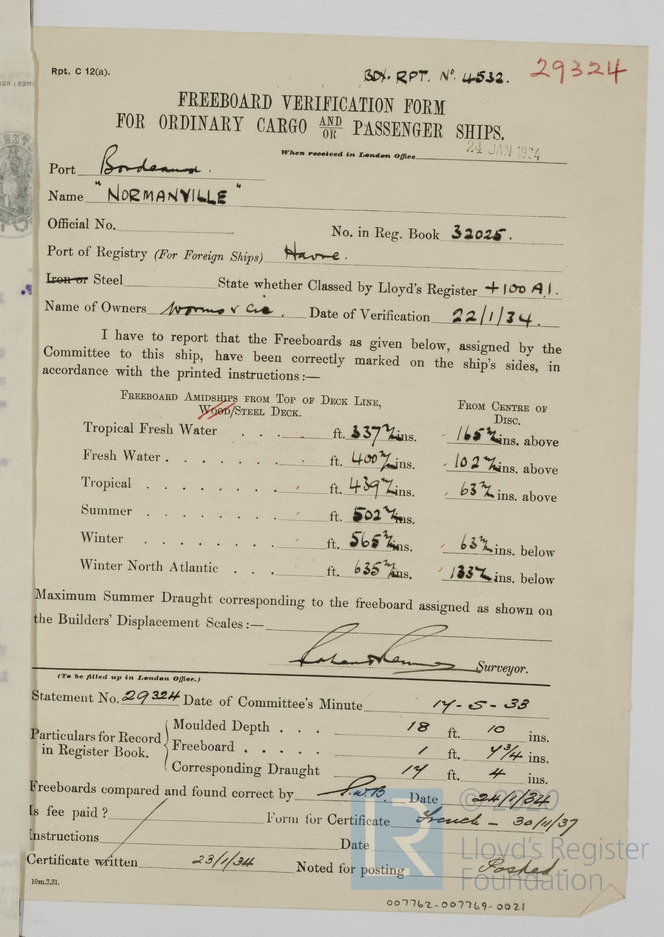 Rpt. C 12(a).
BDX. RPT. No. 4532.
29324
FREEBOARD VERIFICATION FORM
FOR ORDINARY CARGO AND/OR PASSENGER SHIPS.
When received in London Office 24 JAN 1934
Port Bordeaux.
Name "NORMANVILLE"
Official No. No. in Reg. Book 32025.
Port of Registry (For Foreign Ships) Havre.
Iron or Steel State whether Classed by Lloyd's Register +100 A1.
Name of Owners Worms & Cie. Date of Verification 22/1/34.
I have to report that the Freeboards as given below, assigned by the
Committee to this ship, have been correctly marked on the ship's sides, in
accordance with the printed instructions:—
FREEBOARD AMIDSHIPS FROM TOP OF DECK LINE,
WOOD/STEEL DECK.
FROM CENTRE OF
DISC.
Tropical Fresh Water . . . ft. 337 m/m ins. 165 m/m ins. above
Fresh Water . . . . . . . ft. 400 m/m ins. 102 m/m ins. above
Tropical . . . . . . . . ft. 439 m/m ins. 63 m/m ins. above
Summer . . . . . . . . ft. 502 m/m ins.
Winter . . . . . . . . ft. 565 m/m ins. 63 m/m ins. below
Winter North Atlantic . . . ft. 635 m/m ins. 133 m/m ins. below
Maximum Summer Draught corresponding to the freeboard assigned as shown on
the Builders' Displacement Scales:—
Surveyor.
(To be filled up in London Office.)
Statement No. 29324 Date of Committee's Minute 17-5-33
Particulars for Record
in Register Book.
Moulded Depth . . . 18 ft. 10 ins.
Freeboard . . . . . 1 ft. 7 3/4 ins.
Corresponding Draught 17 ft. 4 ins.
Freeboards compared and found correct by Date 24/1/34
Is fee paid? Form for Certificate French - 30/11/37
Instructions Date
Certificate written 23/1/34 Noted for posting Posted
10m.7,31.
© 2020
Lloyd's Register
Foundation
007762-007769-0021